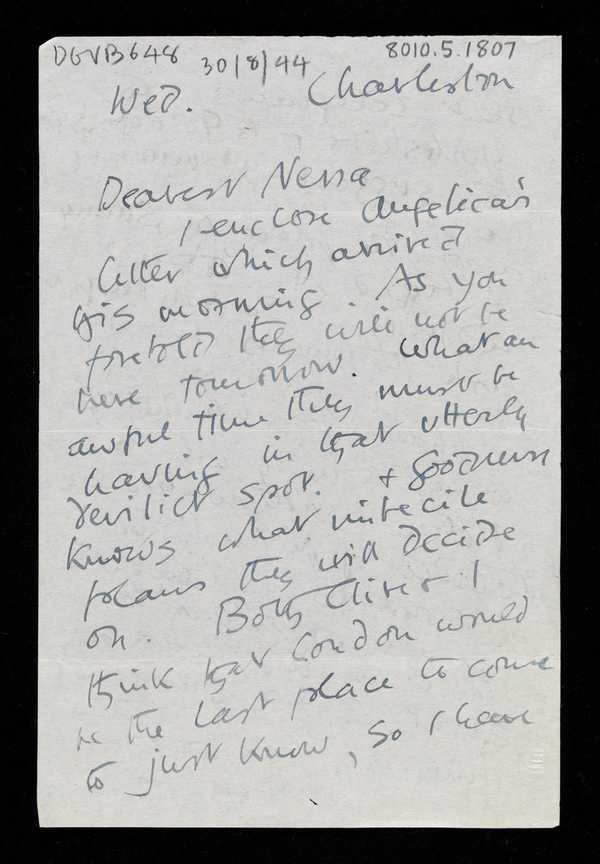 DGVB648
30/8/44
8010.5.1807
Wed.
Charleston
Dearest Nessa
I enclose Angelica's
letter which arrived
this morning. As you
foretold they will not be
here tomorrow. What an
awful time they must be
having in that utterly
derilict spot. + Goodness
knows what imbecile
plans they will decide
on. Both Clive + I
think that London would
be the last place to come
to just know, so I have